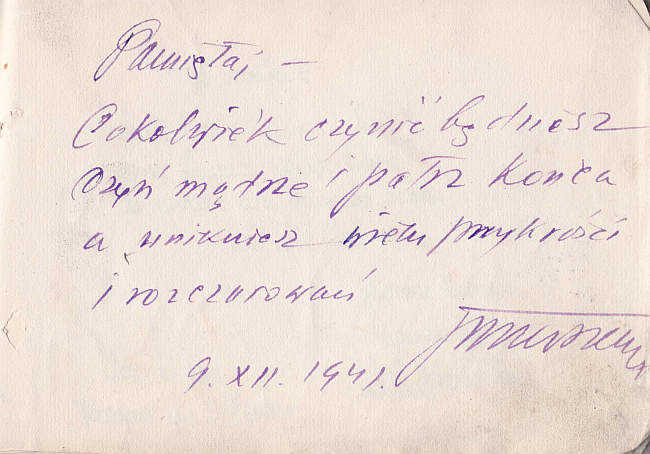 Pamiętaj –
Cokolwiek czynić będziesz
czyń mądrze i patrz końca
a unikniesz wielu przykrości
i rozczarowań
9. XII. 1941.